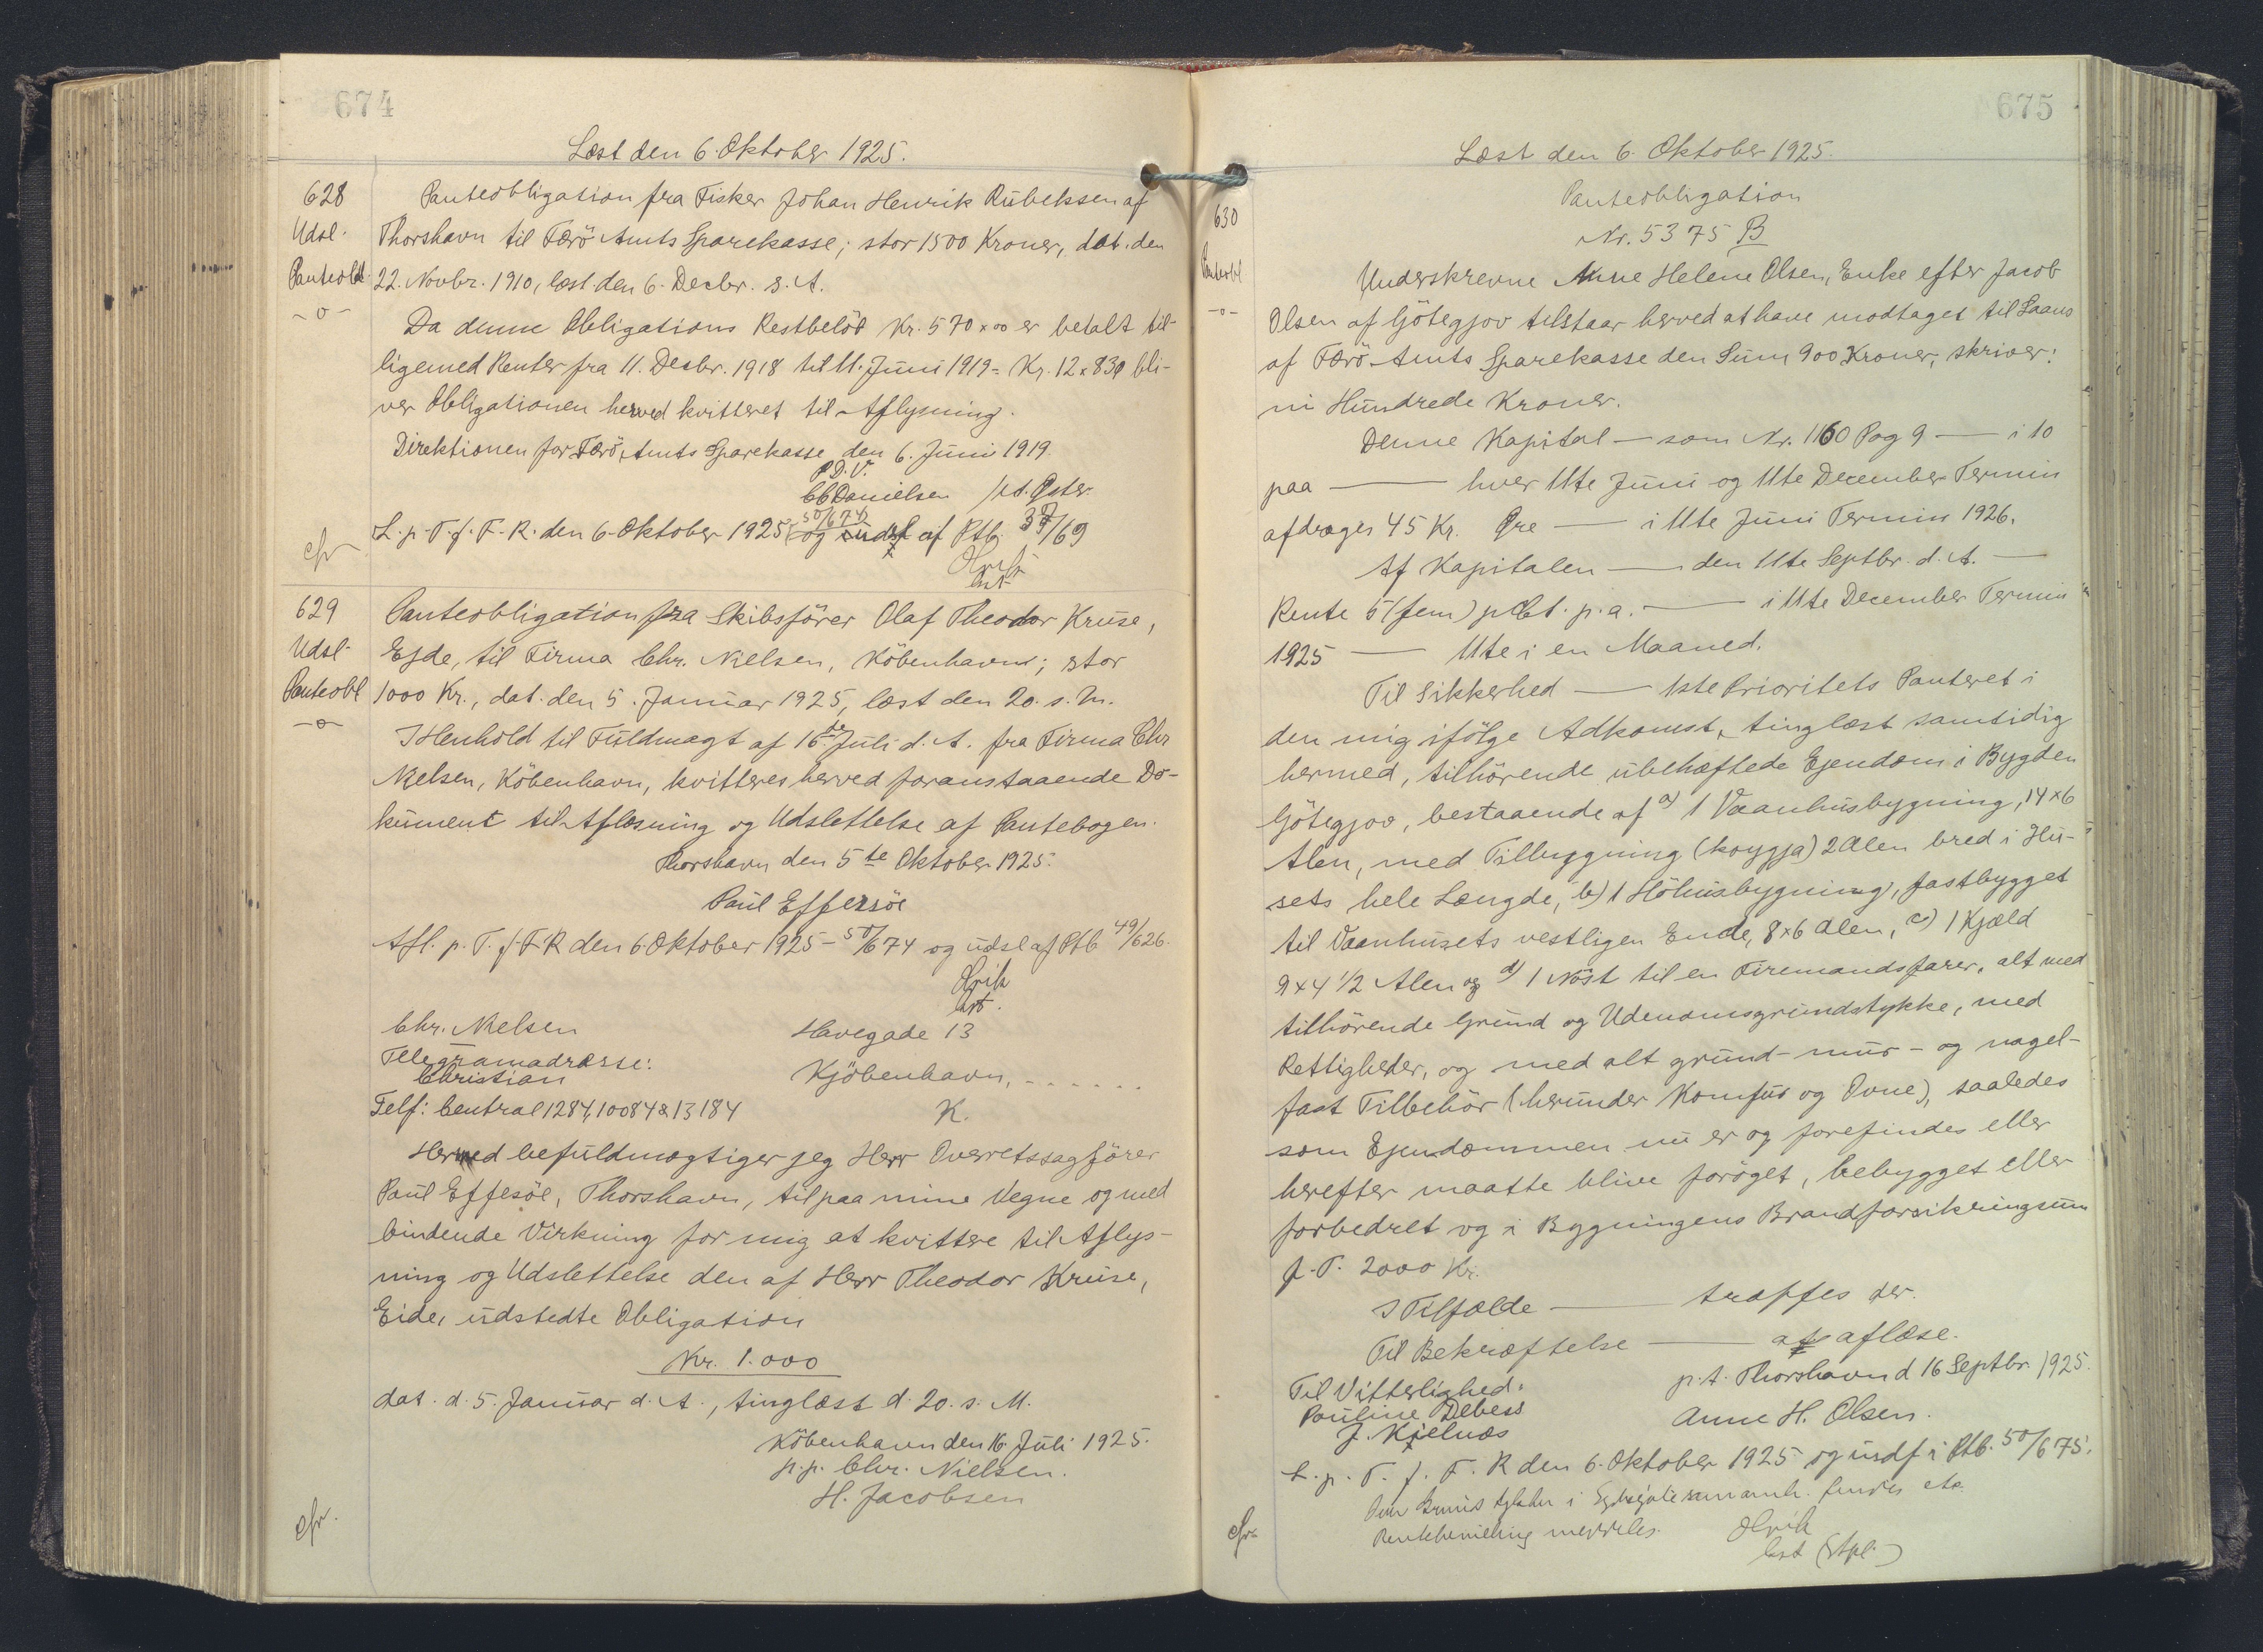 674
Læst den 6. Oktober 1925.
628
Udsl.
Panteobl.
-o-
Panteobligation fra Fisker Johan Henrik Rübeksen af
Thorshavn til Færö Amts Sparekasse; stor 1500 Kroner, dat. den
22. Novbr. 1910, læst den 6. Decbr. s. A.
Da denne Obligations Restbelöb Kr. 570 x 00 er betalt til-
ligemed Renter fra 11. Decbr. 1918 til 11. Juni 1919 = Kr. 12 x 83 bli-
ver Obligationen herved kvitteret til Aflysning.
Direktionen for Færö Amts Sparekasse den 6. Juni 1919.
P.D.V.
CC Danielsen / Öster.
cfr
L. p. T. f. F. R. den 6. Oktober 1925 50/674 og udsl af Ptb. 37/69
629
Udsl.
Panteobl
-o-
Panteobligation fra Skibsförer Olaf Theodor Kruse,
Ejde, til Firma Chr. Nielsen, Köbenhavn; stor
1000 Kr., dat. den 5. Januar 1925, læst den 20. s. M.
I Henhold til Fuldmagt af 16de Juli d. A. fra Firma Chr
Nielsen, Köbenhavn, kvitteres herved foranstaaende Do-
kument til Aflæsning og Udslettelse af Pantebogen.
Thorshavn den 5te Oktober 1925.
Paul Effersöe
Afl. p. T. f. F. R den 6. Oktober 1925 - 50/674 og udsl af Ptb 49/626.
Chr. Nielsen Havegade 13
Telegramadræsse:
Christian Kjöbenhavn, - - - - - -
Telf: Central 1284, 10084 & 13184 K.
Hermed befuldmægtiger jeg Herr Overretssagförer
Paul Effesöe, Thorshavn, til paa mine Vegne og med
bindende Virkning for mig at kvittere til Aflys-
ning og Udslettelse den af Herr Theodor Kruse,
Eide, udstedte Obligation
Kr. 1.000
dat. d. 5. Januar d. A., tinglæst d. 20. s. M.
Köbenhavn den 16. Juli 1925.
p.p. Chr. Nielsen.
H. Jacobsen
cfr.
675
Læst den 6. Oktober 1925.
630
Panteobl
-o-
Panteobligation
Nr. 5375 B
Underskrevne Anne Helene Olsen, Enke efter Jacob
Olsen af Götegjov tilstaar herved at have modtaget til Laans
af Færö Amts Sparekasse den Sum 900 Kroner, skriver:
ni Hundrede Kroner.
Denne Kapital — som Nr. 1160 Pag 9 — i 10
paa — hver 11te Juni og 11te December Termin
afdrages 45 Kr. Øre — i 11te Juni Termin 1926.
Af Kapitalen — den 11te Septbr. d. A. —
Rente 5 (fem) pCt. p.a. — i 11te December Termin
1925 — 11te i en Maaned.
Til Sikkerhed — 1ste Prioritets Panteret i
den mig ifölge Adkomst, tinglæst samtidig
hermed, tilhörende ubehæftede Ejendom i Bygden
Götegjov, bestaaende af a) 1 Vaanhusbygning, 14 x 6
Alen, med Tilbygning (koygja) 2 Alen bred i Hu-
sets hele Længde, b) 1 Höhusbygning, fastbygget
til Vaanhusets vestligen Ende, 8 x 6 Alen, c) 1 Kjæld
9 x 4 1/2 Alen og d) 1 Nöst til en Firemandsfarer, alt med
tilhörende Grund og Udenomsgrundstykke, med
Rettigheder, og med alt grund- mur- og nagel-
fast Tilbehör (herunder Komfur og Ovne), saaledes
som Ejendommen nu er og forefindes eller
herefter maatte blive foröget, bebygget eller
forbedret og i Bygningens Brandforsikringsum
f. T. 2000 Kr.
I Tilfælde — træffes der.
Til Bekræftelse — at aflæse.
p.t. Thorshavn d 16 Septbr. 1925.
Til Vitterlighed:
Pouline Debess
J. Kjelnæs
Anne H. Olsen.
L. p. T. f. F. R den 6. Oktober 1925 og indf i Ptb. 50/675.
cfr.